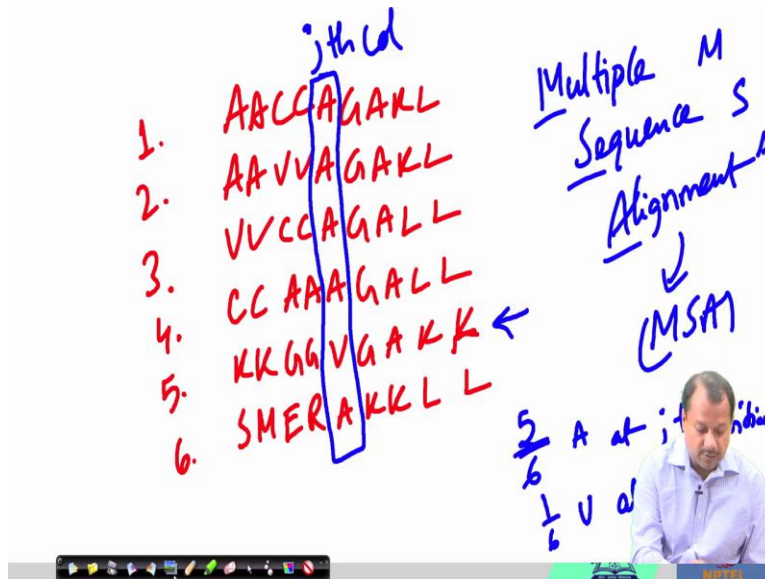 jth Col
1. AACCAGAKL
2. AAVVAGAKL
3. VVCCAGALL
4. CCAAAGALL
5. KKGGVGAKK ←
6. SMERAKKLL
Multiple M
Sequence S
Alignment
(MSA)
5/6 A at jth
1/6 V at
NPTEL